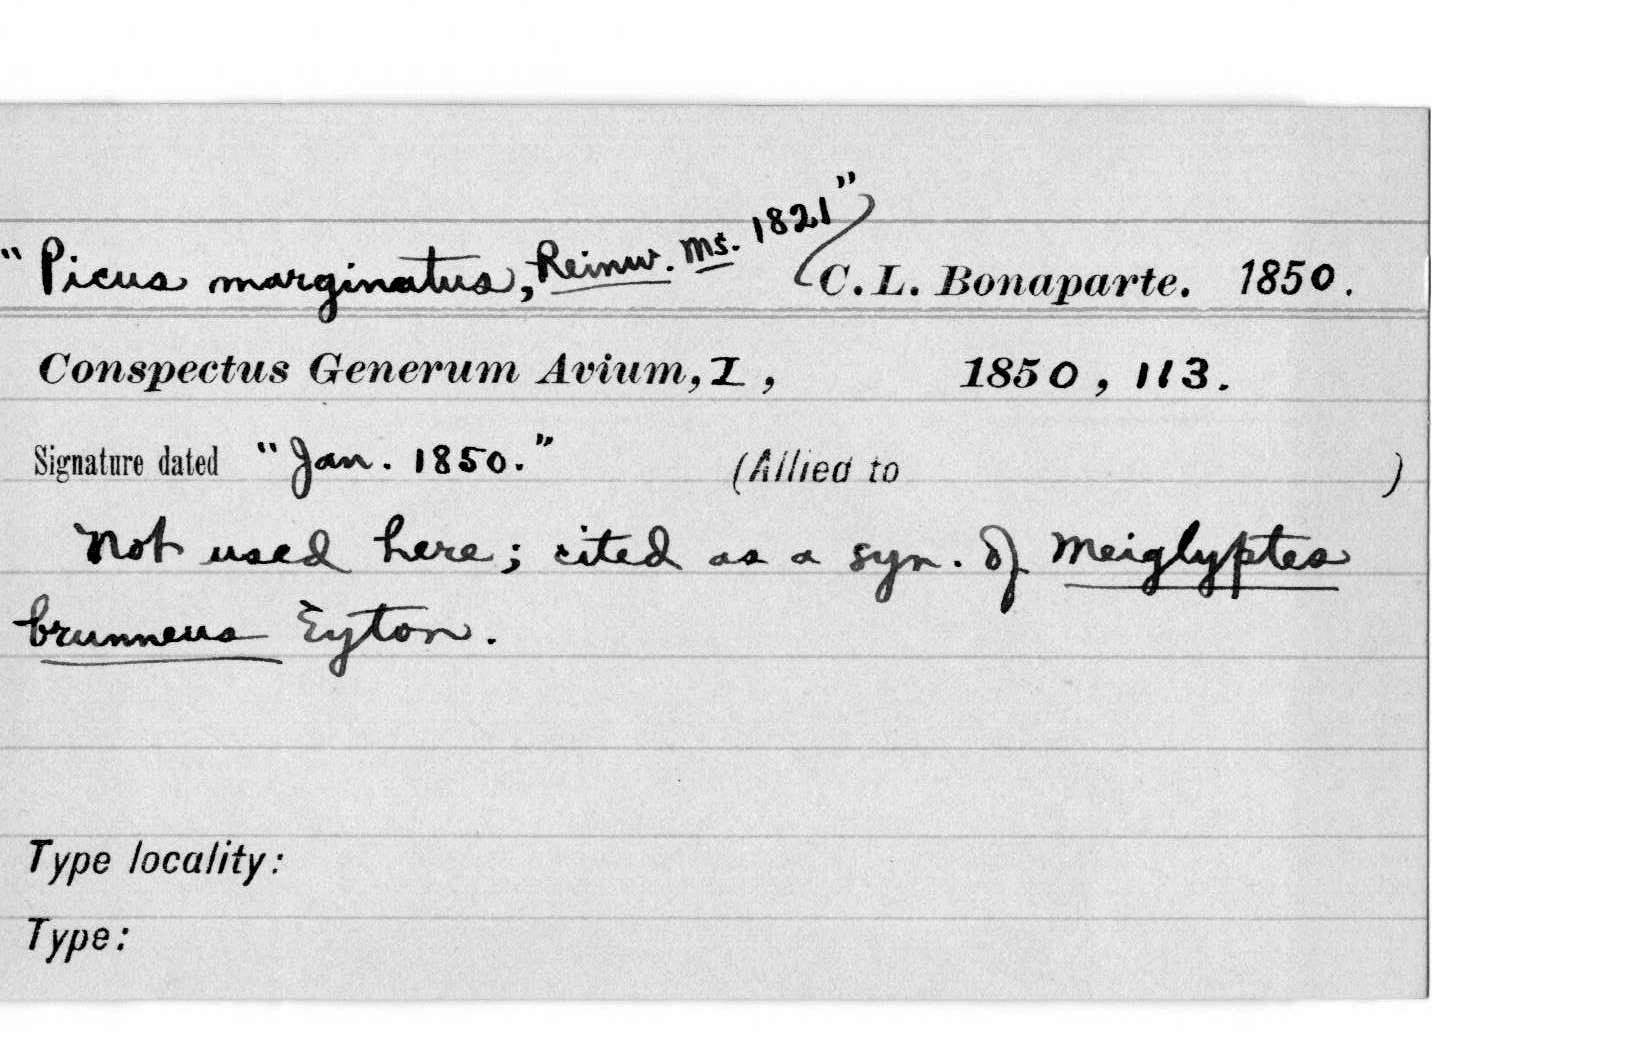 "Picus marginatus, Reinw. Ms. 1821" C. L. Bonaparte. 1850.
Conspectus Generum Avium, I, 1850, 113.
Signature dated "Jan. 1850." (Allied to )
Not used here; cited as a syn. of Meiglyptes
brunneus Eyton.
Type locality:
Type: